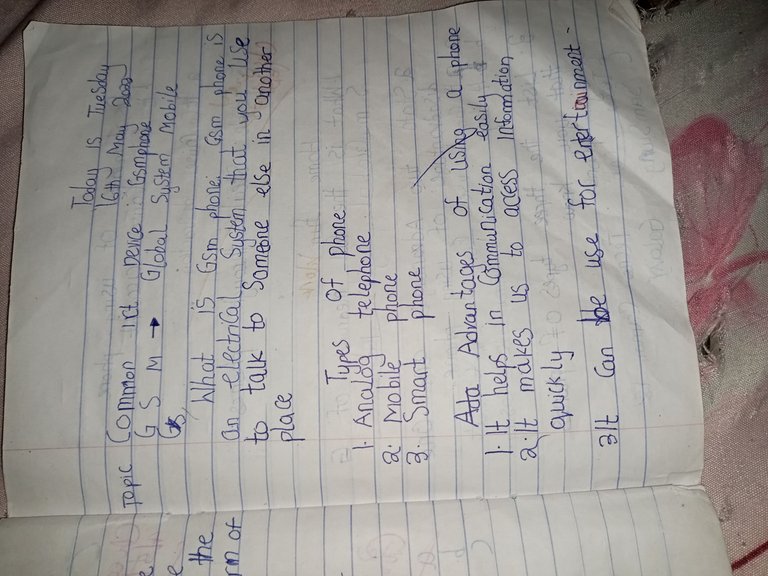 Today is Tuesday
16th May 2023
Topic Common ict Device Gsmphone
G S M → Global System Mobile
What is Gsm phone: Gsm phone is
an electrical System that you use
to talk to Someone else in another
place
Types of phone
1. Analog telephone
2. Mobile phone
3. Smart phone
Advantages of using a phone
1. It helps in Communication easily
2. It makes us to acess Information
quickly
3 It Can be use for entertainment
e
e the
rm of